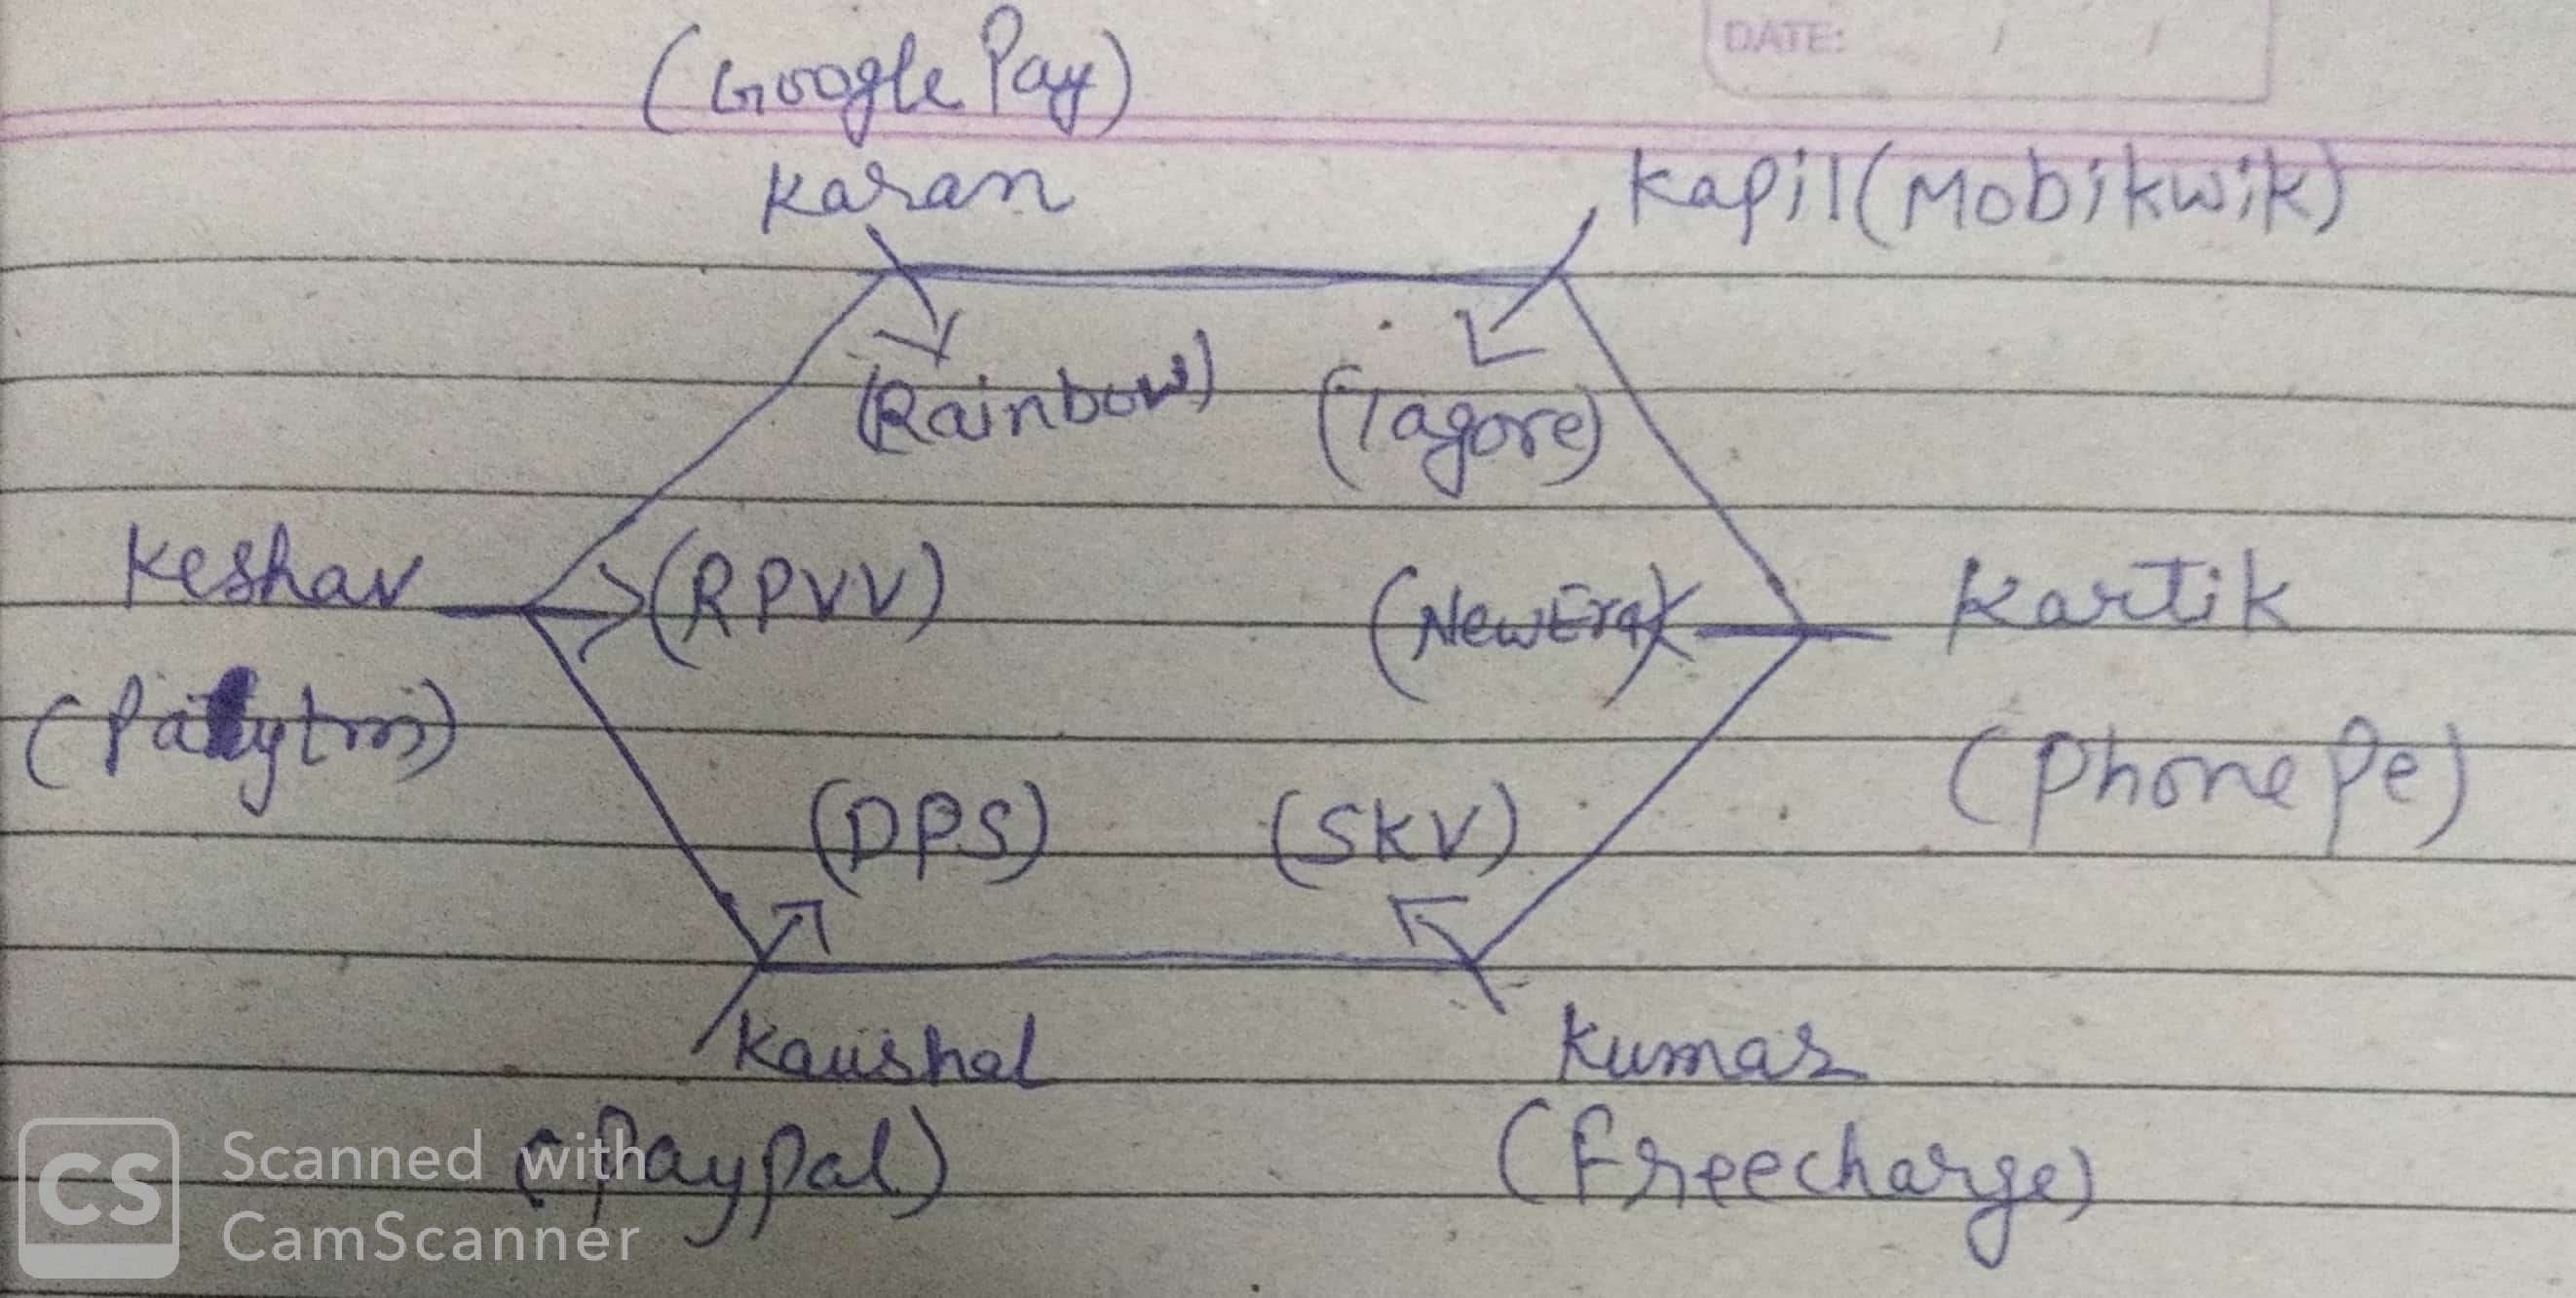 DATE: / /
(Google Pay)
Karan
Kapil (Mobikwik)
(Rainbow) (Tagore)
Keshav (RPVV) (NewEra) Kartik
(Paytm) (PhonePe)
(DPS) (SKV)
Kaushal Kumar
(Paypal) (Freecharge)
CS Scanned with
CamScanner